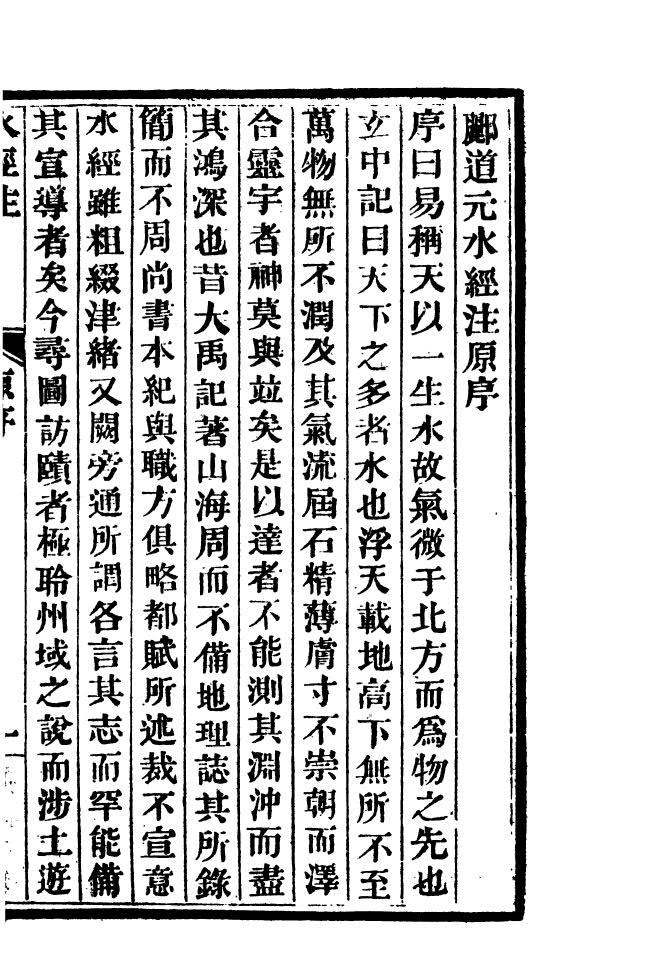 酈道元水經注原序
序曰易稱天以一生水故氣微于北方而爲物之先也
玄中記曰天下之多者水也浮天載地高下無所不至
萬物無所不潤及其氣流屆石精薄膚寸不崇朝而澤
合靈宇者神莫與竝矣是以達者不能測其淵沖而盡
其鴻深也昔大禹記著山海周而不備地理誌其所錄
簡而不周尚書本紀與職方俱略都賦所述裁不宣意
水經雖粗綴津緒又闕旁通所謂各言其志而罕能備
其宣導者矣今尋圖訪賾者極聆州域之說而涉土遊
水經注
原序
一